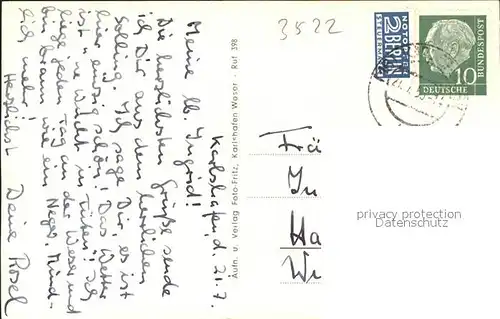 3522
NOTOPFER
2 BERLIN
STEUERMARKE
DEUTSCHE
BUNDESPOST
10
Karlshafen, d. 21.7.
Meine lb. Ingrid!
Die herzlichsten Grüße sende
ich Dir aus dem herrlichen
Solling. Ich sage Dir, es ist
hier einzig schön! Das Wetter
ist 'ne Wucht in Tüten! Ich
liege jeden Tag an der Weser und
bin braun wie ein Neger. Und
lich mehr!
Herzlichst Deine Rosel
Aufn. u. Verlag Foto-Fritz, Karlshafen Weser - Ruf 398
Frä
In
Ha
We
privacy protection
Datenschutz